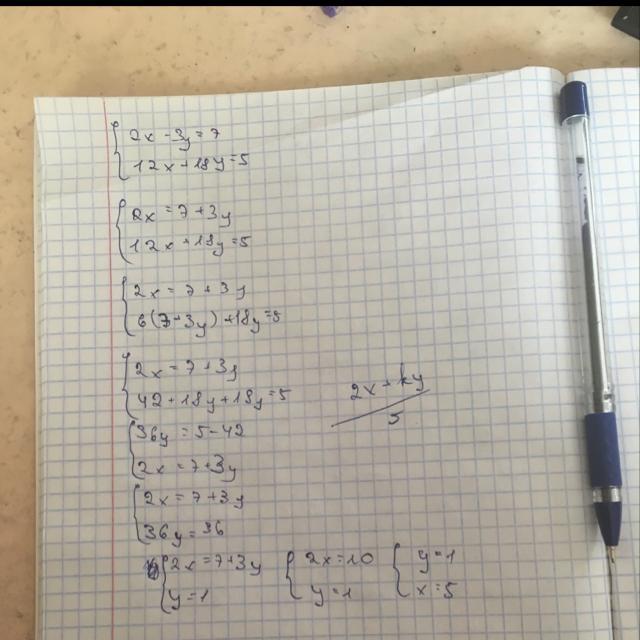 2x - 3y = 7
12x + 18y = 5
2x = 7 + 3y
12x + 18y = 5
2x = 7 + 3y
6(7 + 3y) + 18y = 5
2x = 7 + 3y
42 + 18y + 18y = 5
2x + ky
5
36y = 5 - 42
2x = 7 + 3y
2x = 7 + 3y
36y = 36
2x = 7 + 3y 2x = 10 y = 1
y = 1 y = 1 x = 5